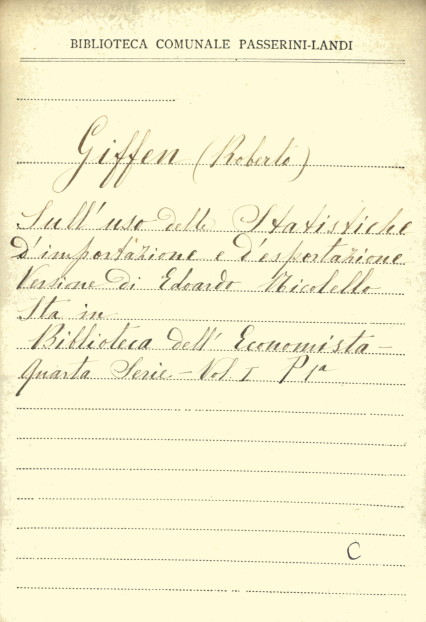 BIBLIOTECA COMUNALE PASSERINI-LANDI
Giffen (Roberto)
Sull'uso delle Statistiche
d'importazione e d'esportazione
Versione di Edoardo Nicolello
Sta in
Biblioteca dell'Economista -
quarta Serie. - Vol. I P 1a
C